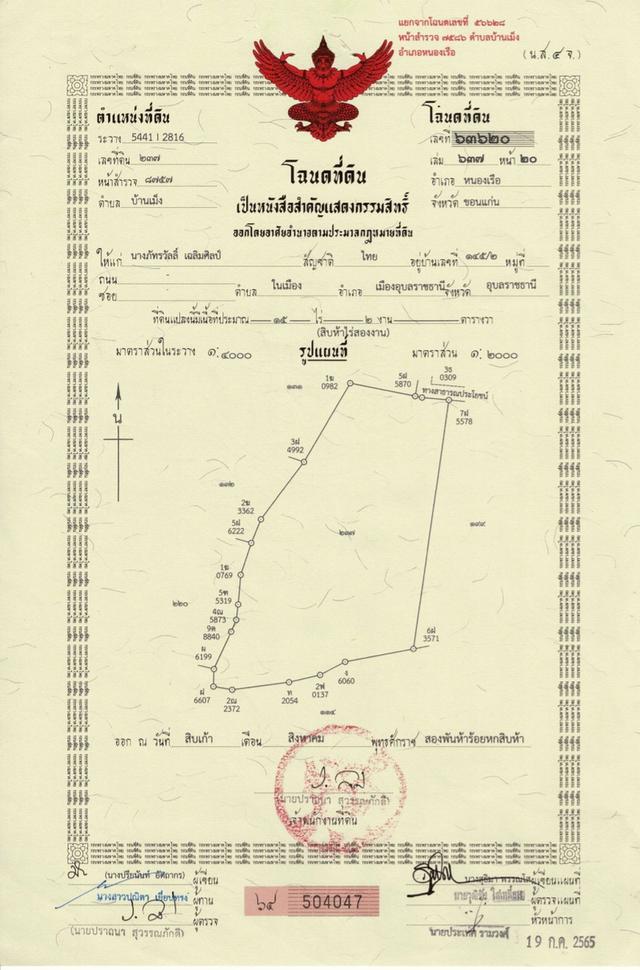 แยกจากโฉนดเลขที่ ๕๖๖๒๘
หน้าสำรวจ ๗๕๘๖ ตำบลบ้านเม็ง
อำเภอหนองเรือ
(น.ส.๔ จ.)
ตำแหน่งที่ดิน
ระวาง 5441 I 2816
เลขที่ดิน ๒๓๗
หน้าสำรวจ ๘๗๕๗
ตำบล บ้านเม็ง
โฉนดที่ดิน
เลขที่ ๖๓๖๒๐
เล่ม ๖๓๗ หน้า ๒๐
อำเภอ หนองเรือ
จังหวัด ขอนแก่น
โฉนดที่ดิน
เป็นหนังสือสำคัญแสดงกรรมสิทธิ์
ออกโดยอาศัยอำนาจตามประมวลกฎหมายที่ดิน
ให้แก่ นางภัทรวัลลิ์ เฉลิมศิลป์ สัญชาติ ไทย อยู่บ้านเลขที่ ๑๔๕/๒ หมู่ที่
ถนน
ซอย ตำบล ในเมือง อำเภอ เมืองอุบลราชธานี จังหวัด อุบลราชธานี
ที่ดินแปลงนี้มีเนื้อที่ประมาณ ๑๕ ไร่ ๒ งาน ตารางวา
(สิบห้าไร่สองงาน)
มาตราส่วนในระวาง ๑:๔๐๐๐ รูปแผนที่ มาตราส่วน ๑:๒๐๐๐
น
๑๓๑
1ฆ
0982
5ฝ
5870
3ธ
0309
ทางสาธารณประโยชน์
7ฝ
5578
3ฝ
4992
๑๓๒
2ฆ
3362
5ฝ
6222
๒๓๗
๑๙๙
1ฆ
0769
5ฑ
5319
๒๒๐
4ณ
5873
9ด
8840
6ฝ
3571
ผ
6199
ฝ
6607
2ณ
2372
ท
2054
2ฬ
0137
ง
6060
๑๑๔
ออก ณ วันที่ สิบเก้า เดือน สิงหาคม พุทธศักราช สองพันห้าร้อยหกสิบห้า
(นายปราถนา สุวรรณภักดี)
เจ้าพนักงานที่ดิน
ผู้เขียน
ผู้ทาน
ผู้ตรวจ
(นายปราถนา สุวรรณภักดี)
๖๕ 504047
ผู้เขียนแผนที่
ผู้ตรวจแผนที่
หัวหน้าการ
19 ก.ค. 2565